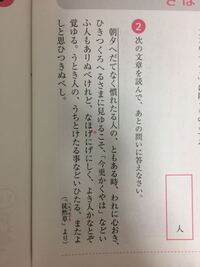 2 次の文章を読んで、あとの問いに答えなさい。
朝夕へだてなく慣れたる人の、ともある時、われに心おき、
ひきつくろへるさまに見ゆるこそ、「今更かくやは」などい
ふ人もありぬべけれど、なほげにげにしく、よき人かなとぞ
覚ゆる。うとき人の、うちとけたる事などいひたる、またよ
しと思ひつきぬべし。
(「徒然草」より)
人